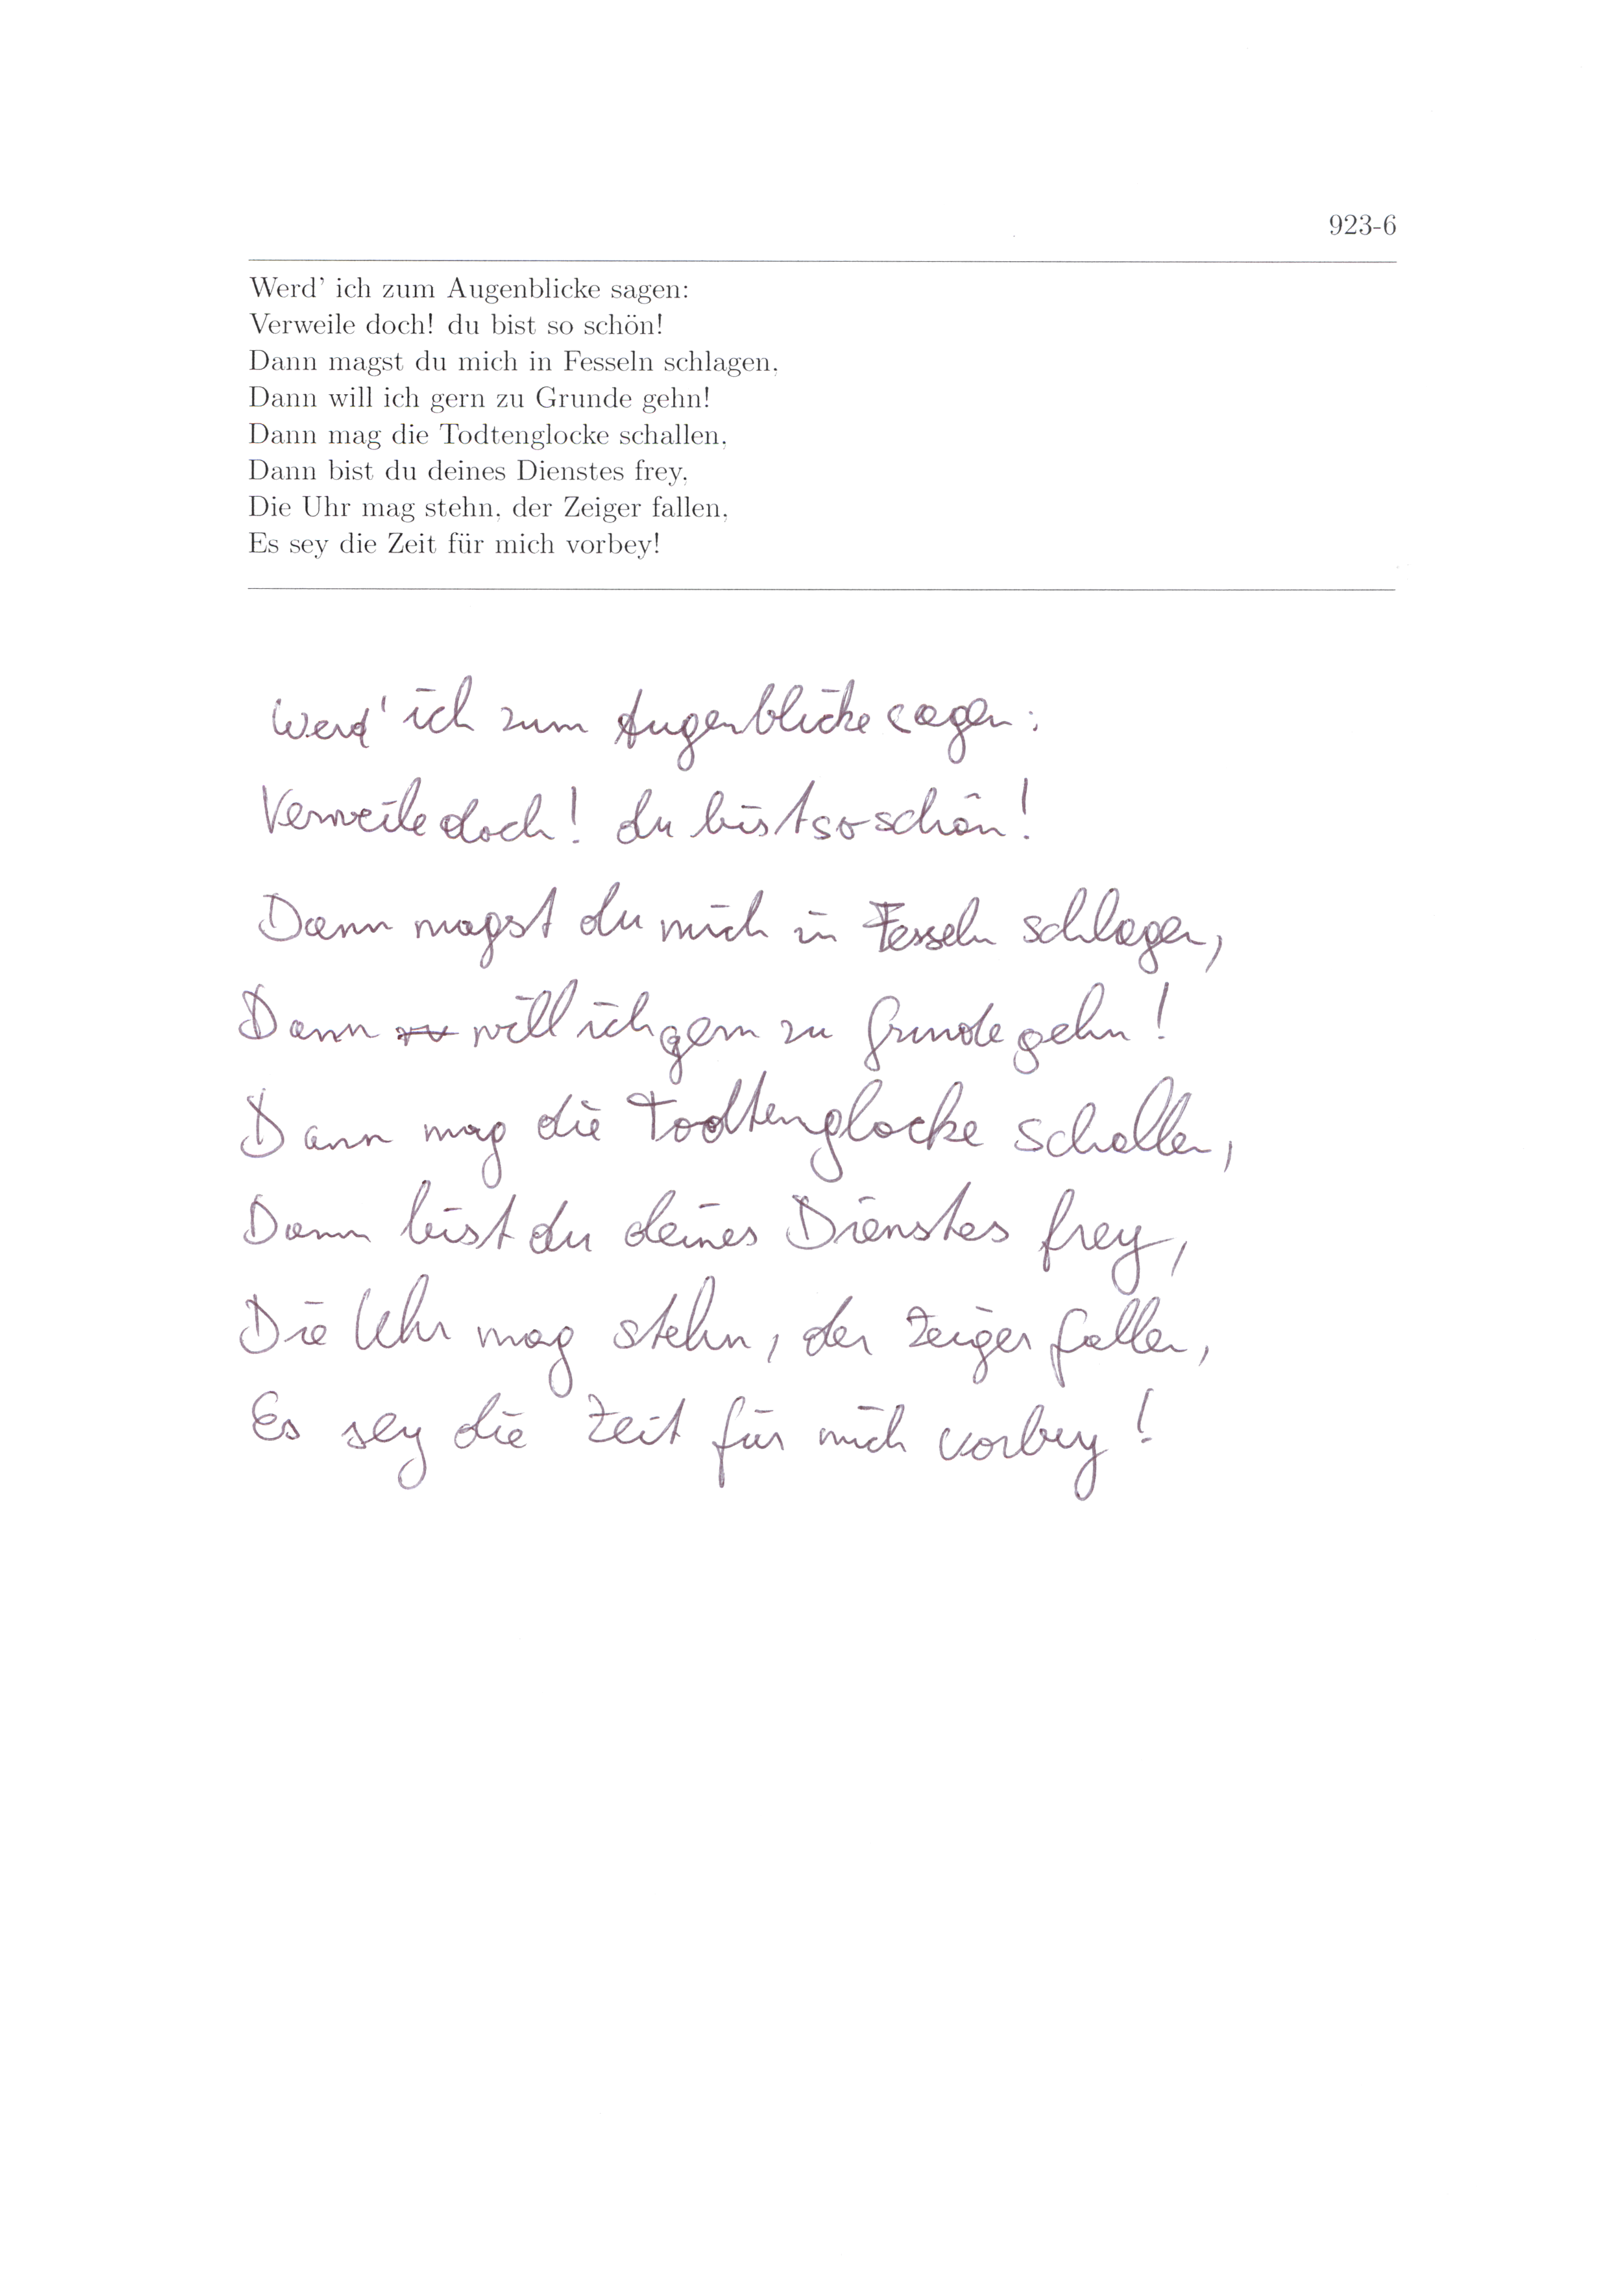 923-6
Werd' ich zum Augenblicke sagen:
Verweile doch! du bist so schön!
Dann magst du mich in Fesseln schlagen,
Dann will ich gern zu Grunde gehn!
Dann mag die Todtenglocke schallen,
Dann bist du deines Dienstes frey,
Die Uhr mag stehn, der Zeiger fallen,
Es sey die Zeit für mich vorbey!
Werd' ich zum Augenblicke sagen:
Verweile doch! du bist so schön!
Dann magst du mich in Fesseln schlagen,
Dann will ich gern zu Grunde gehn!
Dann mag die Todtenglocke schallen,
Dann bist du deines Dienstes frey,
Die Uhr mag stehn, der Zeiger fallen,
Es sey die Zeit für mich vorbey!